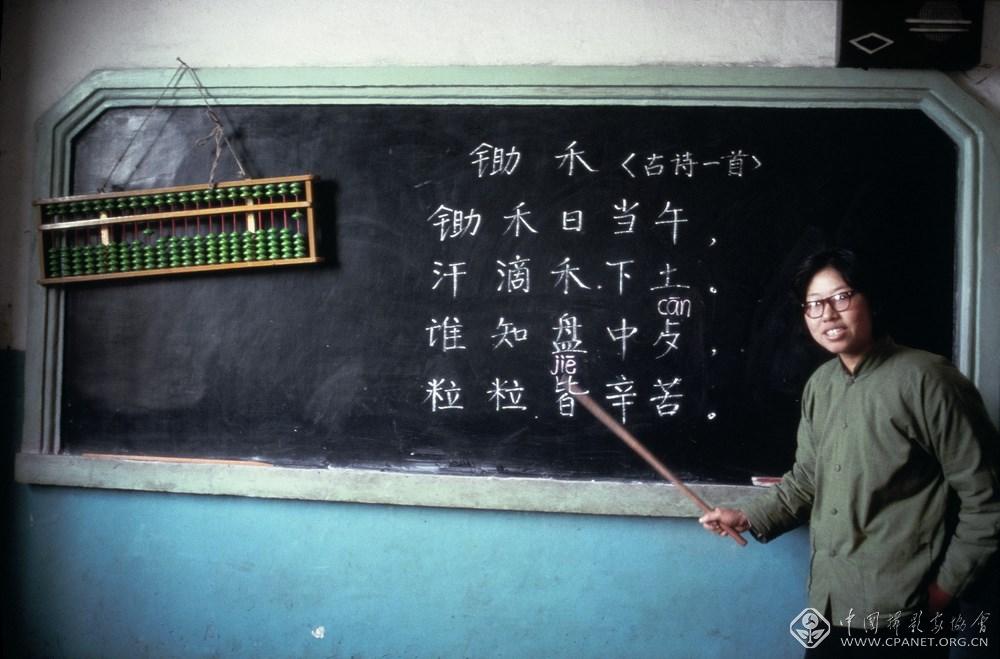 锄禾〈古诗一首〉
锄禾日当午，
汗滴禾下土。
cān
谁知盘中歺，
jiē
粒粒皆辛苦。
中國攝影家協會
WWW.CPANET.ORG.CN